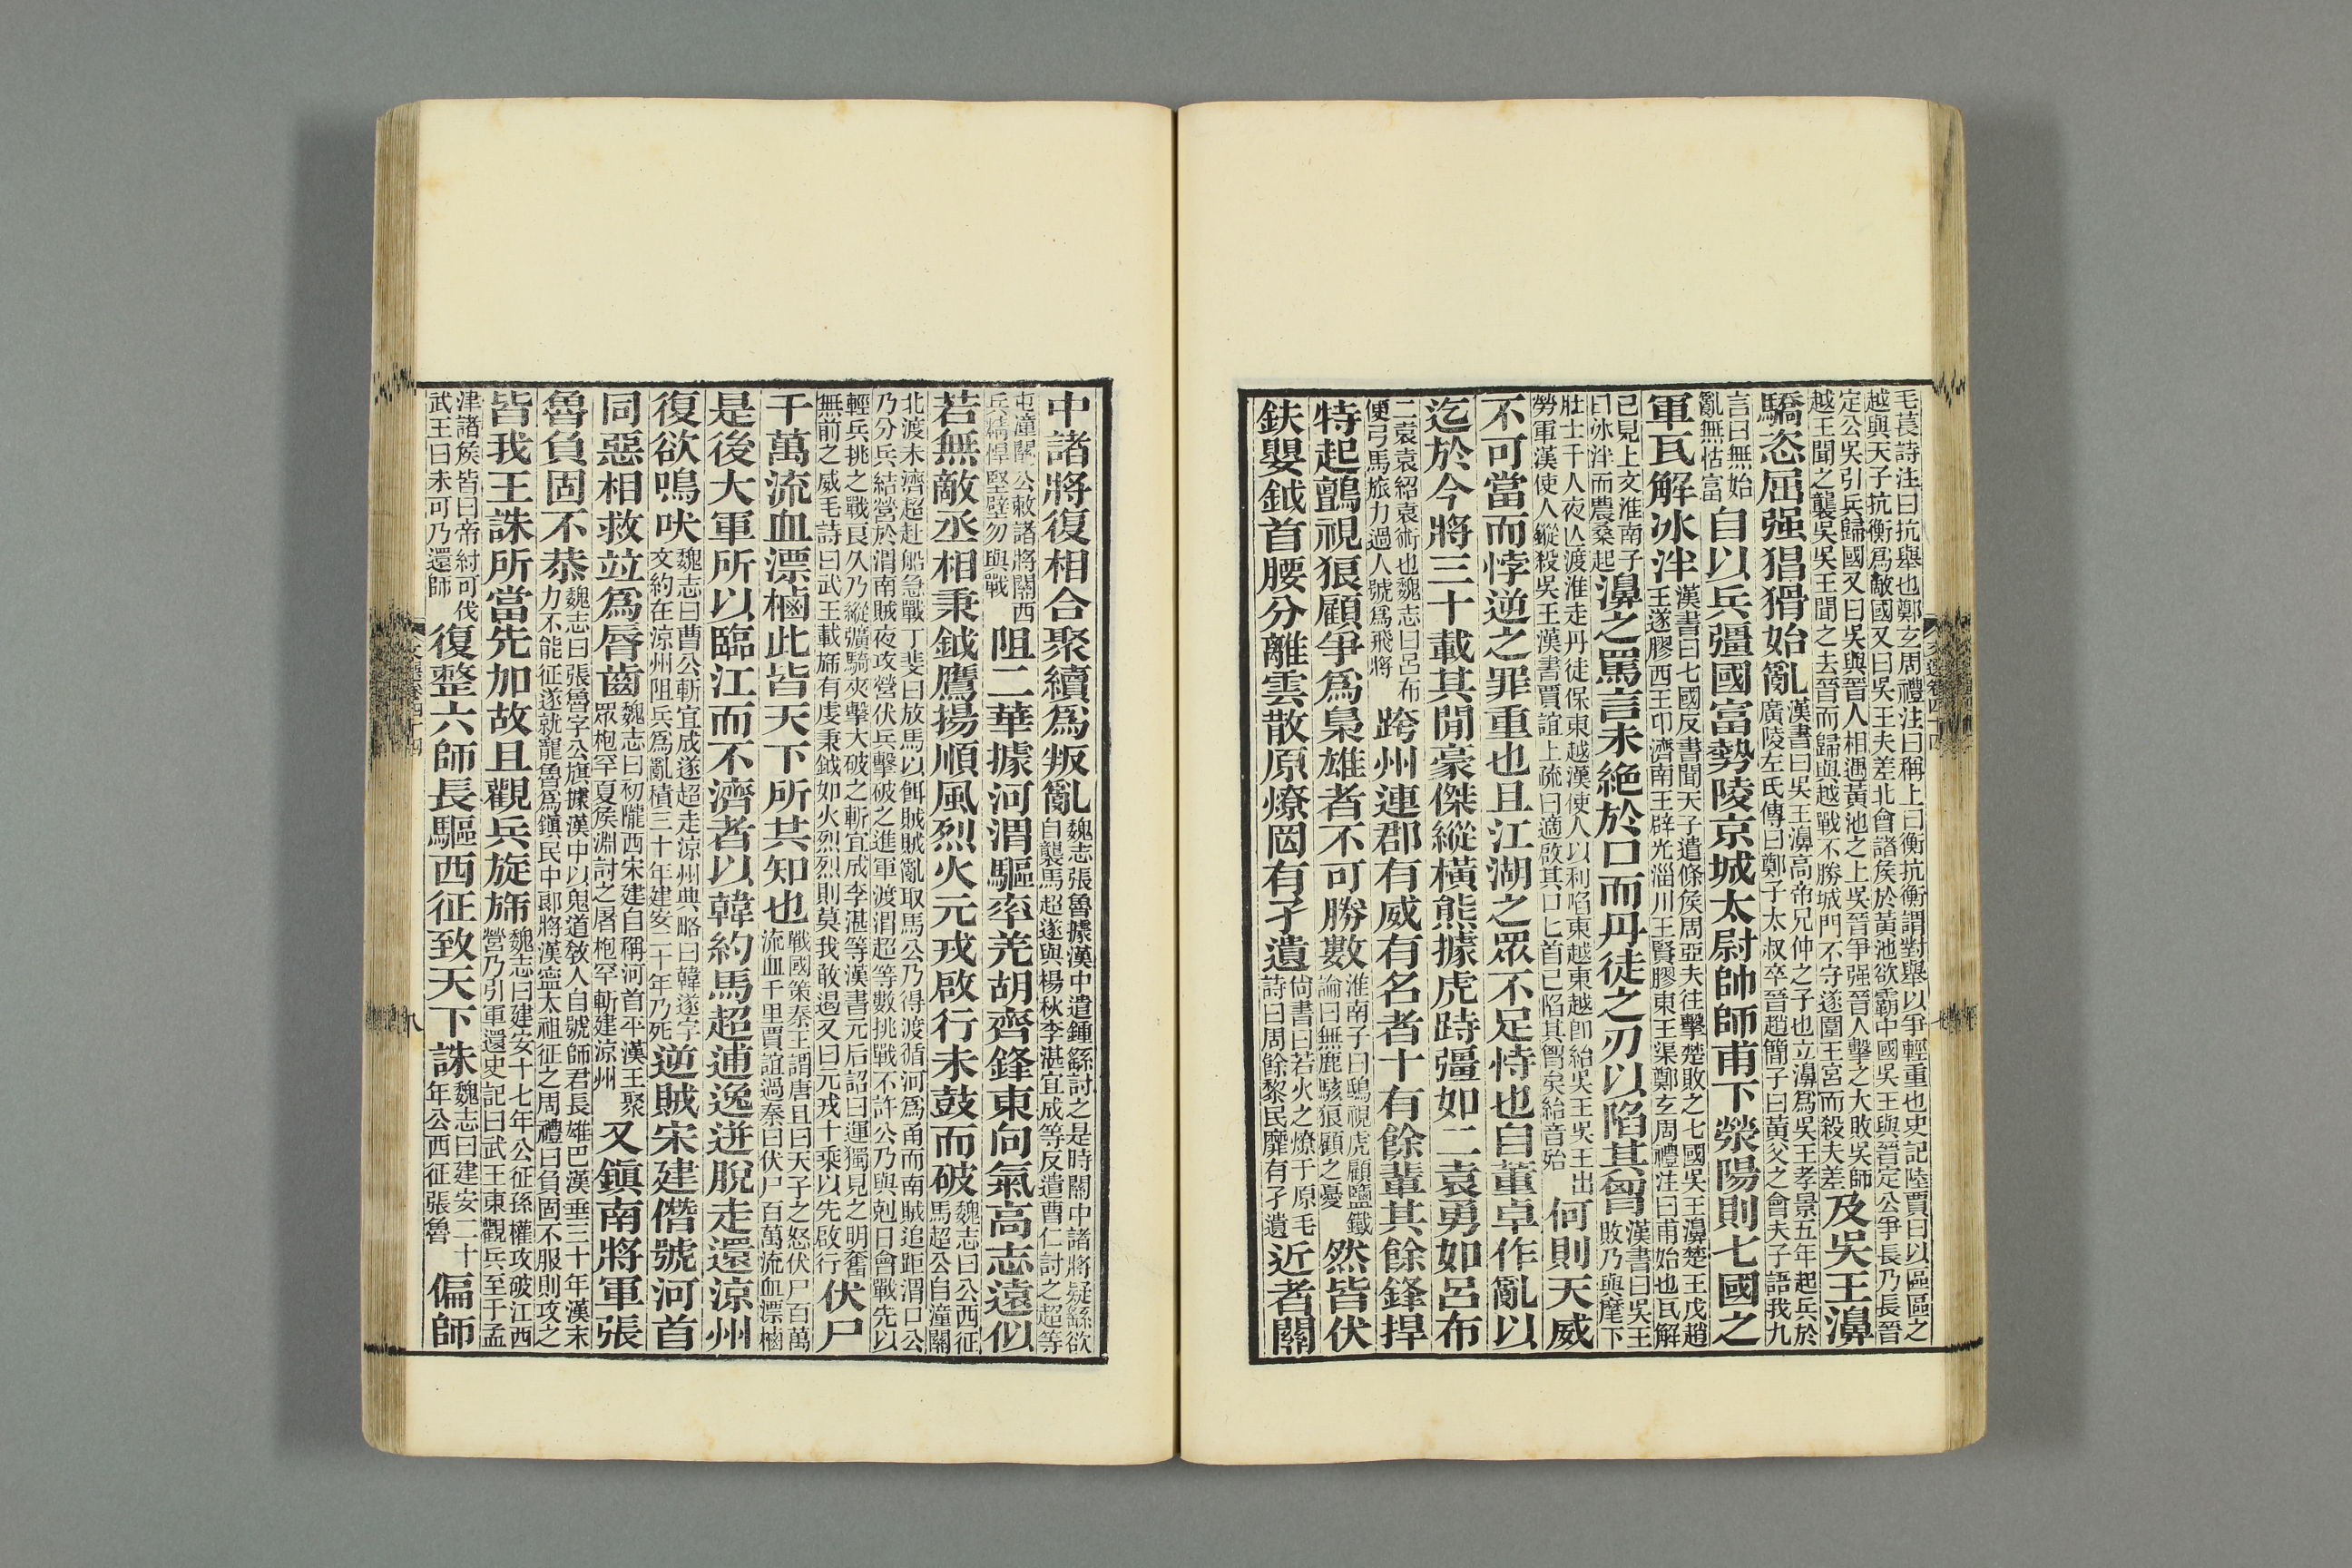 毛萇詩注曰抗舉也鄭玄周禮注曰稱上曰衡抗衡謂對舉以爭輕重也史記陸賈曰以區區之越與天子抗衡爲敵國又曰吳王夫差北會諸侯於黃池欲霸中國吳王與晉定公爭長乃長晉
定公吳引兵歸國又曰吳與晉人相遇黃池之上吳晉爭强晉人擊之大敗吳師越王聞之襲吳吳王聞之去晉而歸與越戰不勝城門不守遂圍王宮而殺夫差及吳王濞
驕恣屈强猖猾始亂漢書曰吳王濞高帝兄仲之子也立濞爲吳王孝景五年起兵於廣陵左氏傳曰鄭子太叔卒晉趙簡子曰黃父之會夫子語我九
言曰無始亂無怙富自以兵彊國富勢陵京城太尉帥師甫下滎陽則七國之
軍瓦解冰泮漢書曰七國反書聞天子遣條侯周亞夫往擊楚敗之七國吳王濞楚王戊趙王遂膠西王卬濟南王辟光淄川王賢膠東王渠鄭玄周禮注曰甫始也瓦解
已見上文淮南子曰冰泮而農桑起濞之罵言未絕於口而丹徒之刃以陷其胷漢書曰吳王敗乃與麾下
壯士千人夜亾渡淮走丹徒保東越漢使人以利啗東越東越卽紿吳王吳王出勞軍漢使人鏦殺吳王漢書賈誼上疏曰適啟其口匕首已陷其胷矣紿音殆何則天威
不可當而悖逆之罪重也且江湖之眾不足恃也自董卓作亂以
迄於今將三十載其閒豪傑縱橫熊據虎跱彊如二袁勇如呂布
二袁袁紹袁術也魏志曰呂布便弓馬旅力過人號爲飛將跨州連郡有威有名者十有餘輩其餘鋒捍
特起鸇視狼顧爭爲梟雄者不可勝數淮南子曰鴟視虎顧鹽鐵論曰無鹿駭狼顧之憂然皆伏
鈇嬰鉞首腰分離雲散原燎罔有孑遺尙書曰若火之燎于原毛詩曰周餘黎民靡有孑遺近者關
中諸將復相合聚續爲叛亂魏志張魯據漢中遣鍾繇討之是時關中諸將疑繇欲自襲馬超遂與楊秋李湛宜成等反遣曹仁討之超等
屯潼關公敕諸將關西兵精悍堅壁勿與戰阻二華據河渭驅率羌胡齊鋒東向氣高志遠似
若無敵丞相秉鉞鷹揚順風烈火元戎啟行未鼓而破魏志曰公西征馬超公自潼關
北渡未濟超赴船急戰丁斐曰放馬以餌賊賊亂取馬公乃得渡循河爲甬而南賊追距渭口公乃分兵結營於渭南賊夜攻營伏兵擊破之進軍渡渭超等數挑戰不許公乃與剋日會戰先以
輕兵挑之戰良久乃縱彍騎夾擊大破之斬宜成李湛等漢書元后詔曰運獨見之明奮無前之威毛詩曰武王載旆有虔秉鉞如火烈烈則莫我敢遏又曰元戎十乘以先啟行伏尸
千萬流血漂樐此皆天下所共知也戰國策秦王謂唐且曰天子之怒伏尸百萬流血千里賈誼過秦曰伏尸百萬流血漂樐
是後大軍所以臨江而不濟者以韓約馬超逋逸迸脫走還涼州
復欲鳴吠魏志曰曹公斬宜成遂超走涼州典略曰韓遂字文約在涼州阻兵爲亂積三十年建安二十年乃死逆賊宋建僭號河首
同惡相救竝爲脣齒魏志曰初隴西宋建自稱河首平漢王聚眾枹罕夏侯淵討之屠枹罕斬建涼州又鎮南將軍張
魯負固不恭魏志曰張魯字公旗據漢中以鬼道敎人自號師君長雄巴漢垂三十年漢末力不能征遂就寵魯爲鎮民中郎將漢寧太祖征之周禮曰負固不服則攻之
皆我王誅所當先加故且觀兵旋旆魏志曰建安十七年公征孫權攻破江西營乃引軍還史記曰武王東觀兵至于孟
津諸侯皆曰帝紂可伐武王曰未可乃還師復整六師長驅西征致天下誅魏志曰建安二十年公西征張魯偏師
文選卷四十四
八